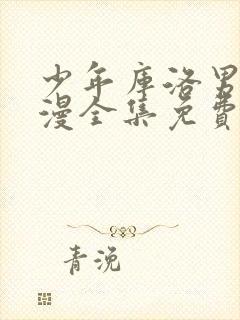 少年库洛男
漫全集免费
青浼